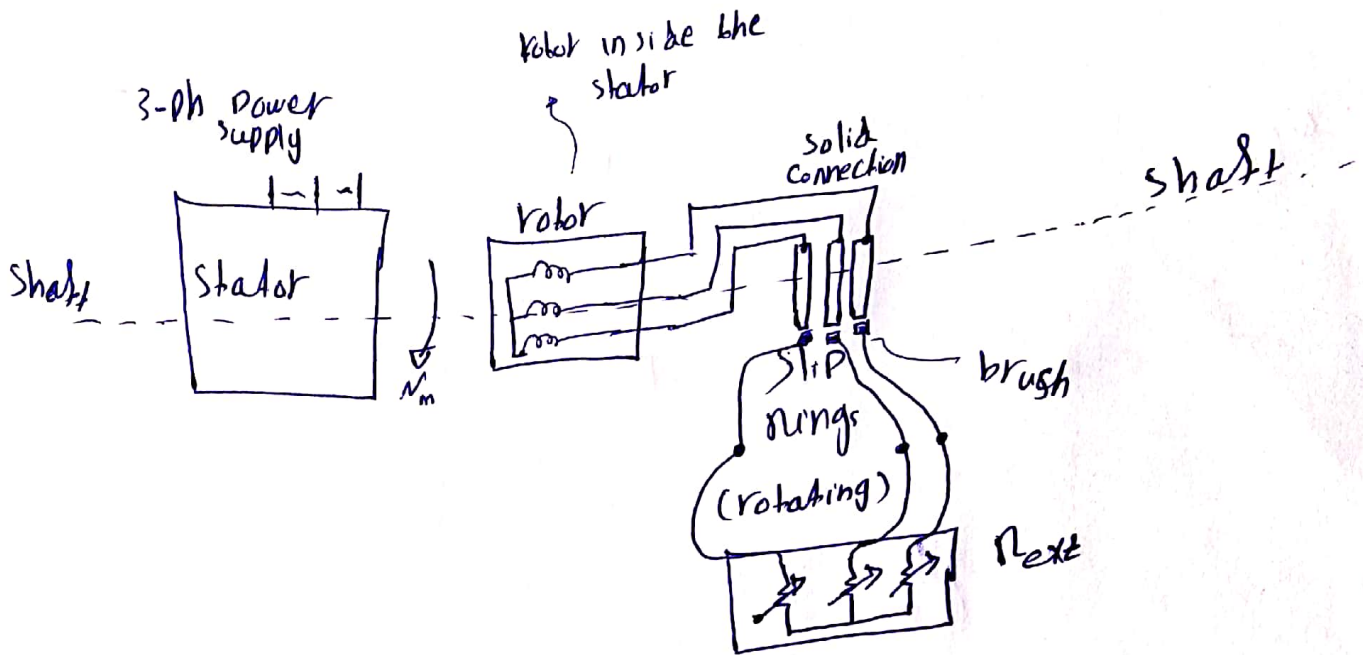 Rotor inside the
stator
3-ph power
supply
solid
connection
shaft
rotor
Shaft
Stator
Nm
slip
rings
(rotating)
brush
Rext